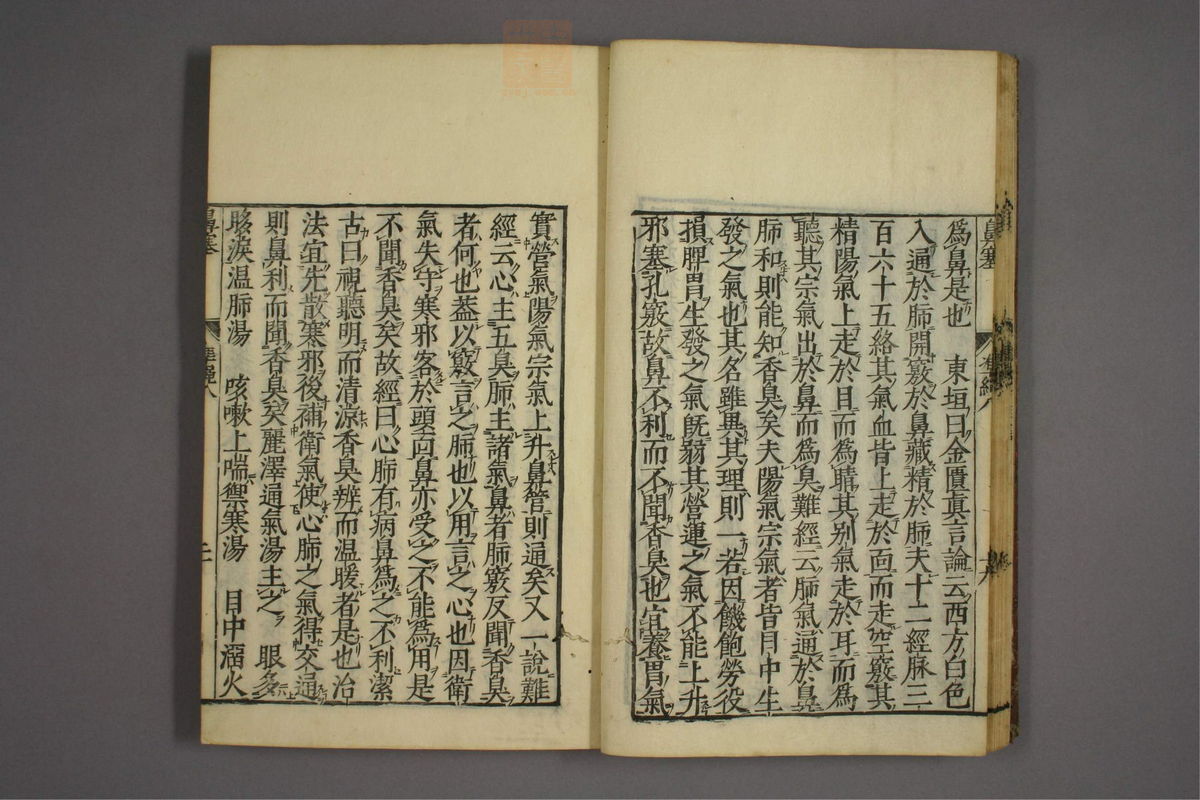 爲鼻是也　東垣曰金匱眞言論云西方白色
入通於肺開竅於鼻藏精於肺夫十二經脉三
百六十五絡其氣血皆上走於面而走空竅其
精陽氣上走於目而爲睛其别氣走於耳而爲
聽其宗氣出於鼻而爲臭難經云肺氣通於鼻
肺和則能知香臭矣夫陽氣宗氣者皆胃中生
發之氣也其名雖異其理則一若因饑飽勞役
損脾胃生發之氣旣弱其營運之氣不能上升
邪塞孔竅故鼻不利而不聞香臭也宜養胃氣
實營氣陽氣宗氣上升鼻管則通矣又一說難
經云心主五臭肺主諸氣鼻者肺竅反聞香臭
者何也蓋以竅言之肺也以用言之心也因衛
氣失守寒邪客於頭面鼻亦受之不能爲用是
不聞香臭矣故經曰心肺有病鼻爲之不利潔
古曰視聽明而清涼香臭辨而温暖者是也治
法宜先散寒邪後補衛氣使心肺之氣得交通
則鼻利而聞香臭矣麗澤通氣湯主之　眼多
眵淚温肺湯　咳嗽上喘禦寒湯　目中溜火
鼻塞